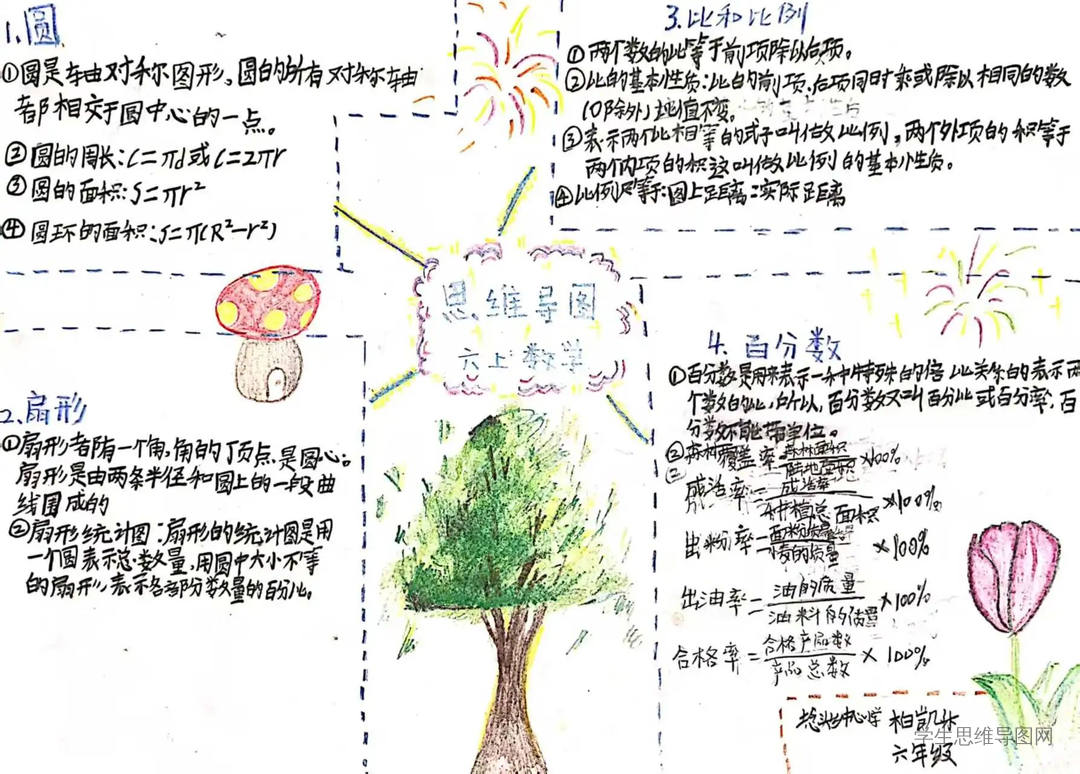 1.圆
①圆是轴对称图形。圆的所有对称轴
都相交于圆中心的一点。
②圆的周长:C=πd或C=2πr
③圆的面积:S=πr²
④圆环的面积:S=π(R²-r²)
3.比和比例
①两个数的比等于前项除以后项。
②比的基本性质:比的前项、后项同时乘或除以相同的数
(0除外)比值不变。
③表示两个比相等的式子叫做比例,两个外项的积等于
两个内项的积这叫做比例的基本性质。
④比例尺等于:图上距离:实际距离
思维导图
六上数学
2.扇形
①扇形都有一个角,角的顶点是圆心。
扇形是由两条半径和圆上的一段曲
线围成的
②扇形统计图:扇形的统计图是用
一个圆表示总数量,用圆中大小不等
的扇形表示各部分数量的百分比。
4.百分数
①百分数是用来表示一种特殊的倍比关系的表示两
个数的比,所以,百分数又叫百分比或百分率,百
分数不能带单位。
②森林覆盖率=森林面积/陆地面积×100%
②
成活率=成活率/种植总面积×100%
出粉率=面粉质量/小麦的质量×100%
出油率=油的质量/油料的质量×100%
合格率=合格产品数/产品总数×100%
中心学 柏凯
六年级
学生思维导图网